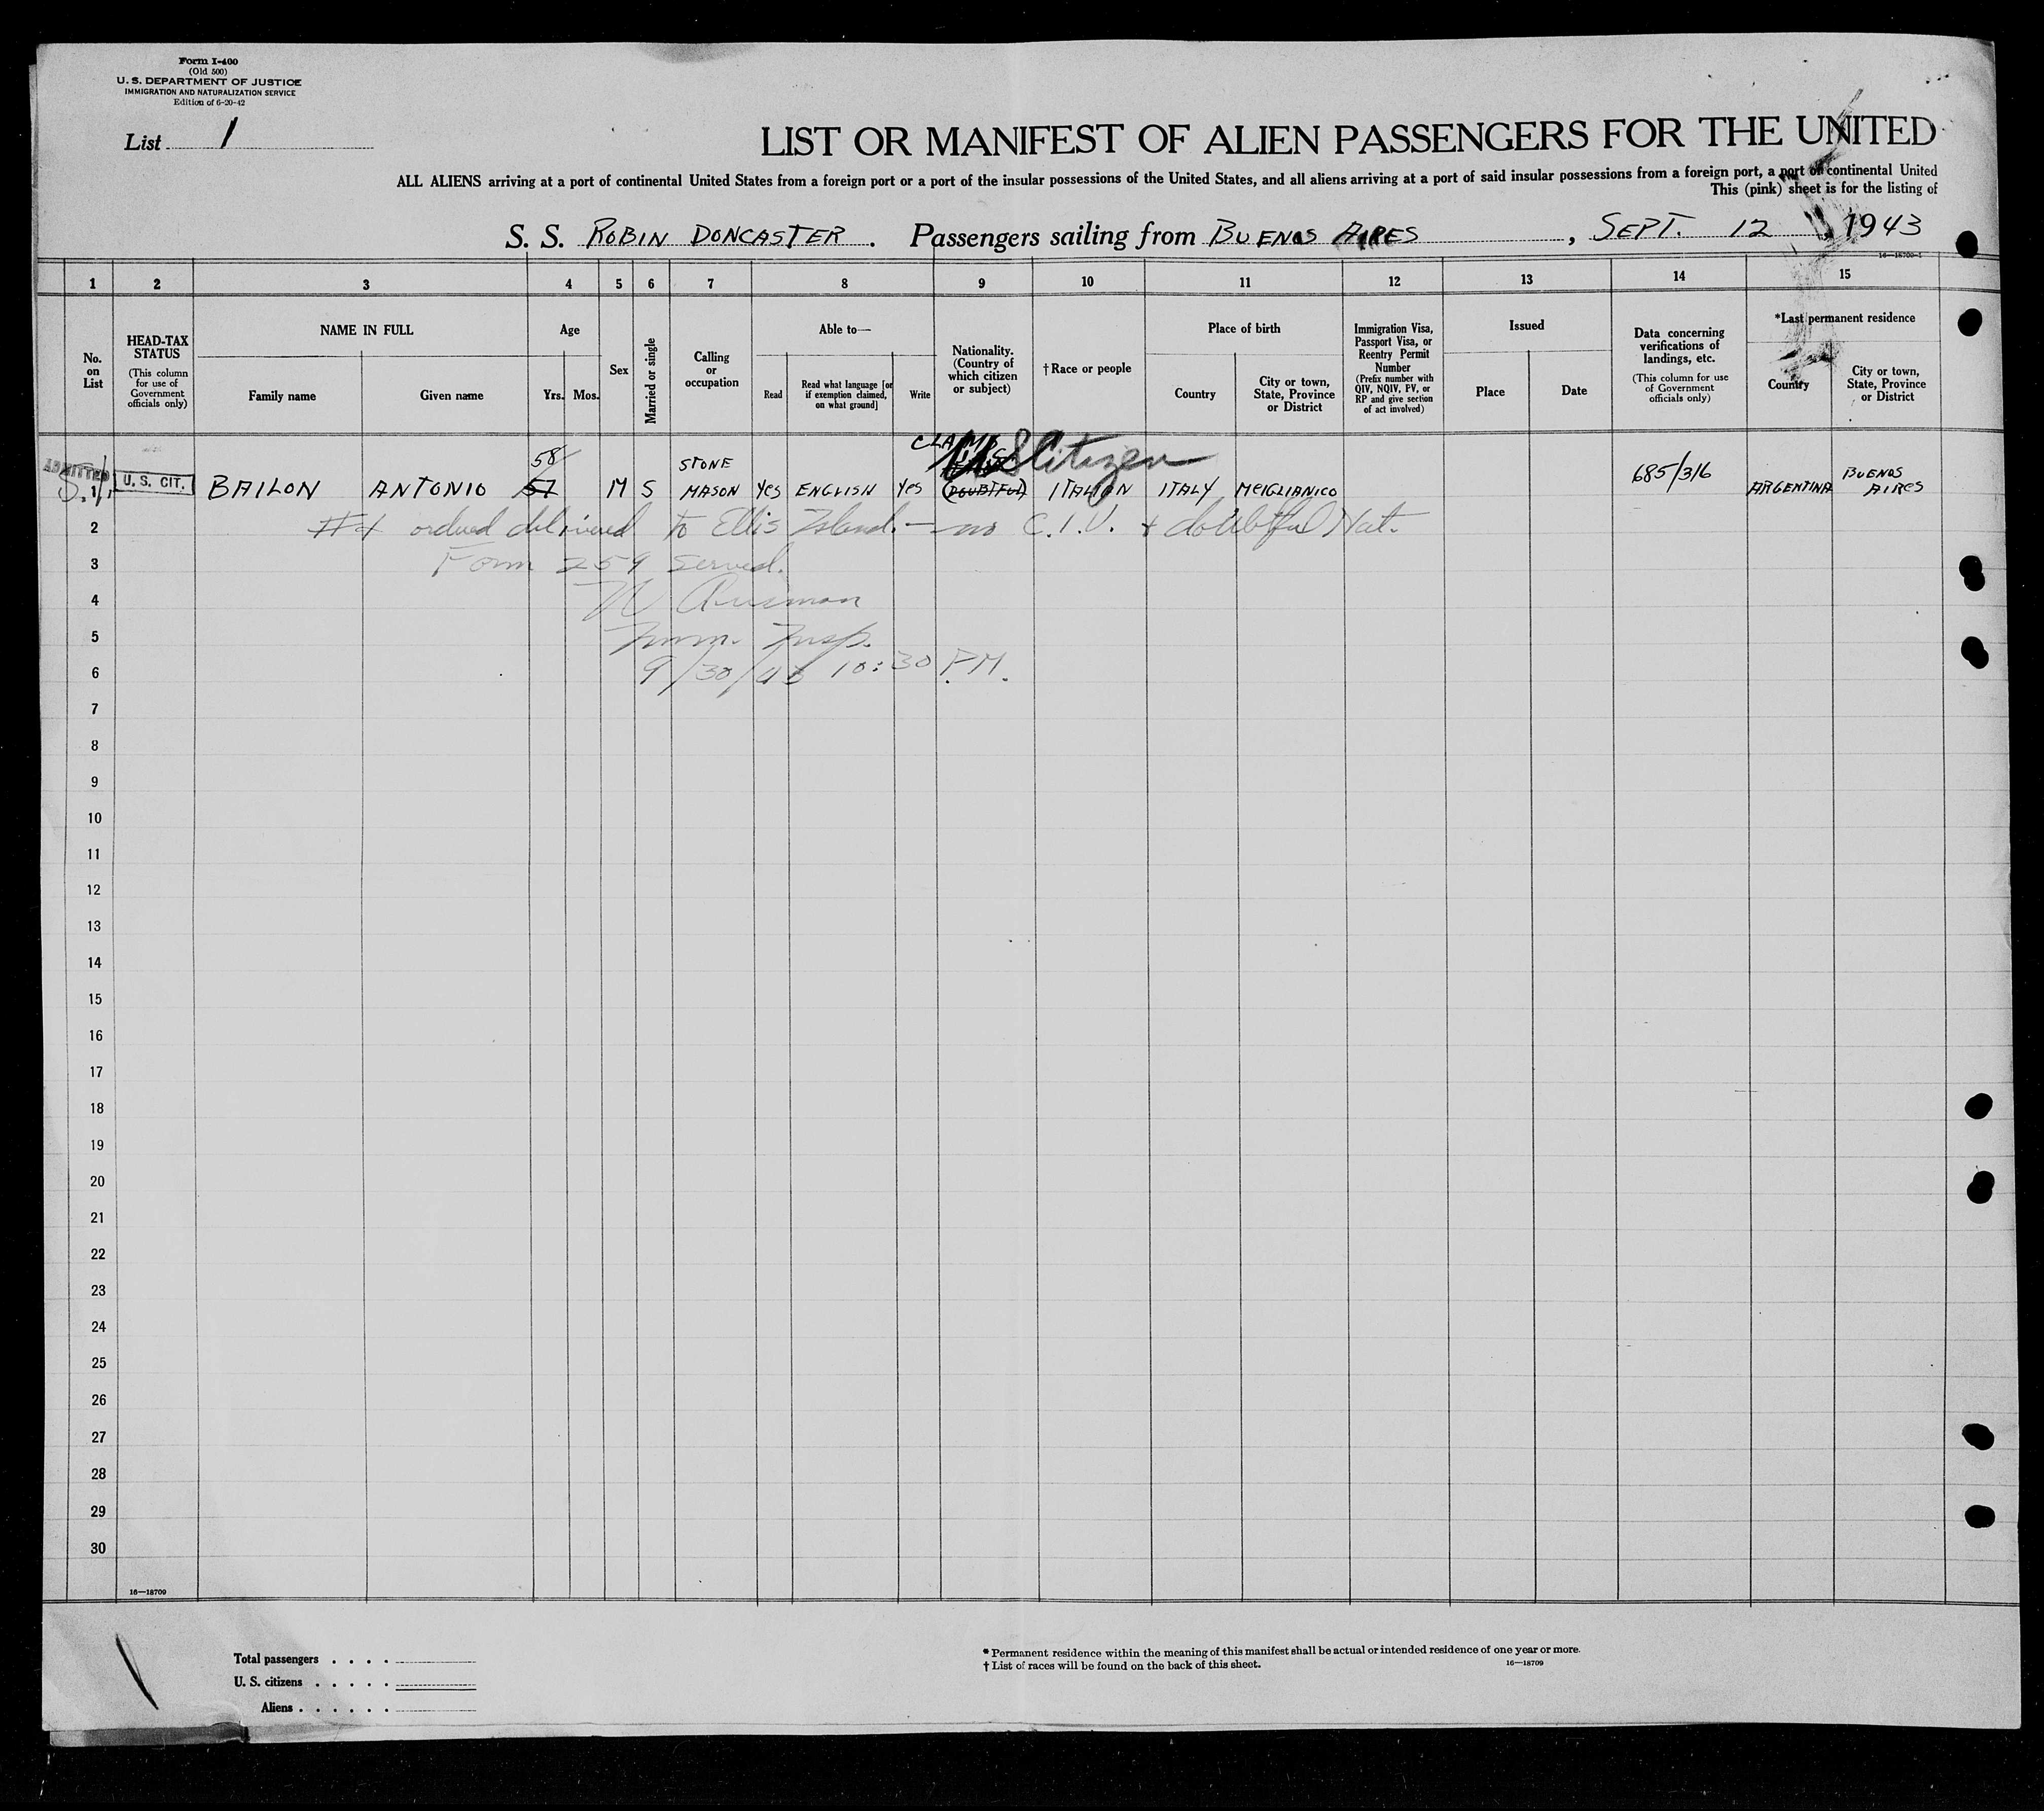 Form I-400
(Old 500)
U. S. DEPARTMENT OF JUSTICE
IMMIGRATION AND NATURALIZATION SERVICE
Edition of 6-20-42
List 1
LIST OR MANIFEST OF ALIEN PASSENGERS FOR THE UNITED
ALL ALIENS arriving at a port of continental United States from a foreign port or a port of the insular possessions of the United States, and all aliens arriving at a port of said insular possessions from a foreign port, a port of continental United
This (pink) sheet is for the listing of
S. S. ROBIN DONCASTER . Passengers sailing from BUENOS AIRES , SEPT. 12 , 1943
16—18709-1
1 2 3 4 5 6 7 8 9 10 11 12 13 14 15
No. on List
HEAD-TAX STATUS
(This column for use of Government officials only)
NAME IN FULL
Family name
Given name
Age
Yrs.
Mos.
Sex
Married or single
Calling or occupation
Able to—
Read
Read what language [or if exemption claimed, on what ground]
Write
Nationality. (Country of which citizen or subject)
†Race or people
Place of birth
Country
City or town, State, Province or District
Immigration Visa, Passport Visa, or Reentry Permit Number
(Prefix number with QIV, NQIV, PV, or RP and give section of act involved)
Issued
Place
Date
Data concerning verifications of landings, etc.
(This column for use of Government officials only)
*Last permanent residence
Country
City or town, State, Province or District
CLAIMS
US Citizen
58
STONE
685/316
BUENOS
ADMITTED
1 U. S. CIT. BAILON ANTONIO 57 M S MASON Yes ENGLISH Yes (DOUBTFUL) ITALIAN ITALY MEIGLIANICO ARGENTINA AIRES
2 #1 ordered delivered to Ellis Island. — no C.I.V. + doubtful Nat.
3 Form 259 served.
4
5 Imm. Insp.
6 9/30/43 10:30 P.M.
7
8
9
10
11
12
13
14
15
16
17
18
19
20
21
22
23
24
25
26
27
28
29
30
16—18709
Total passengers . . . .
U. S. citizens . . . . .
Aliens . . . . . .
* Permanent residence within the meaning of this manifest shall be actual or intended residence of one year or more.
† List of races will be found on the back of this sheet.
16—18709